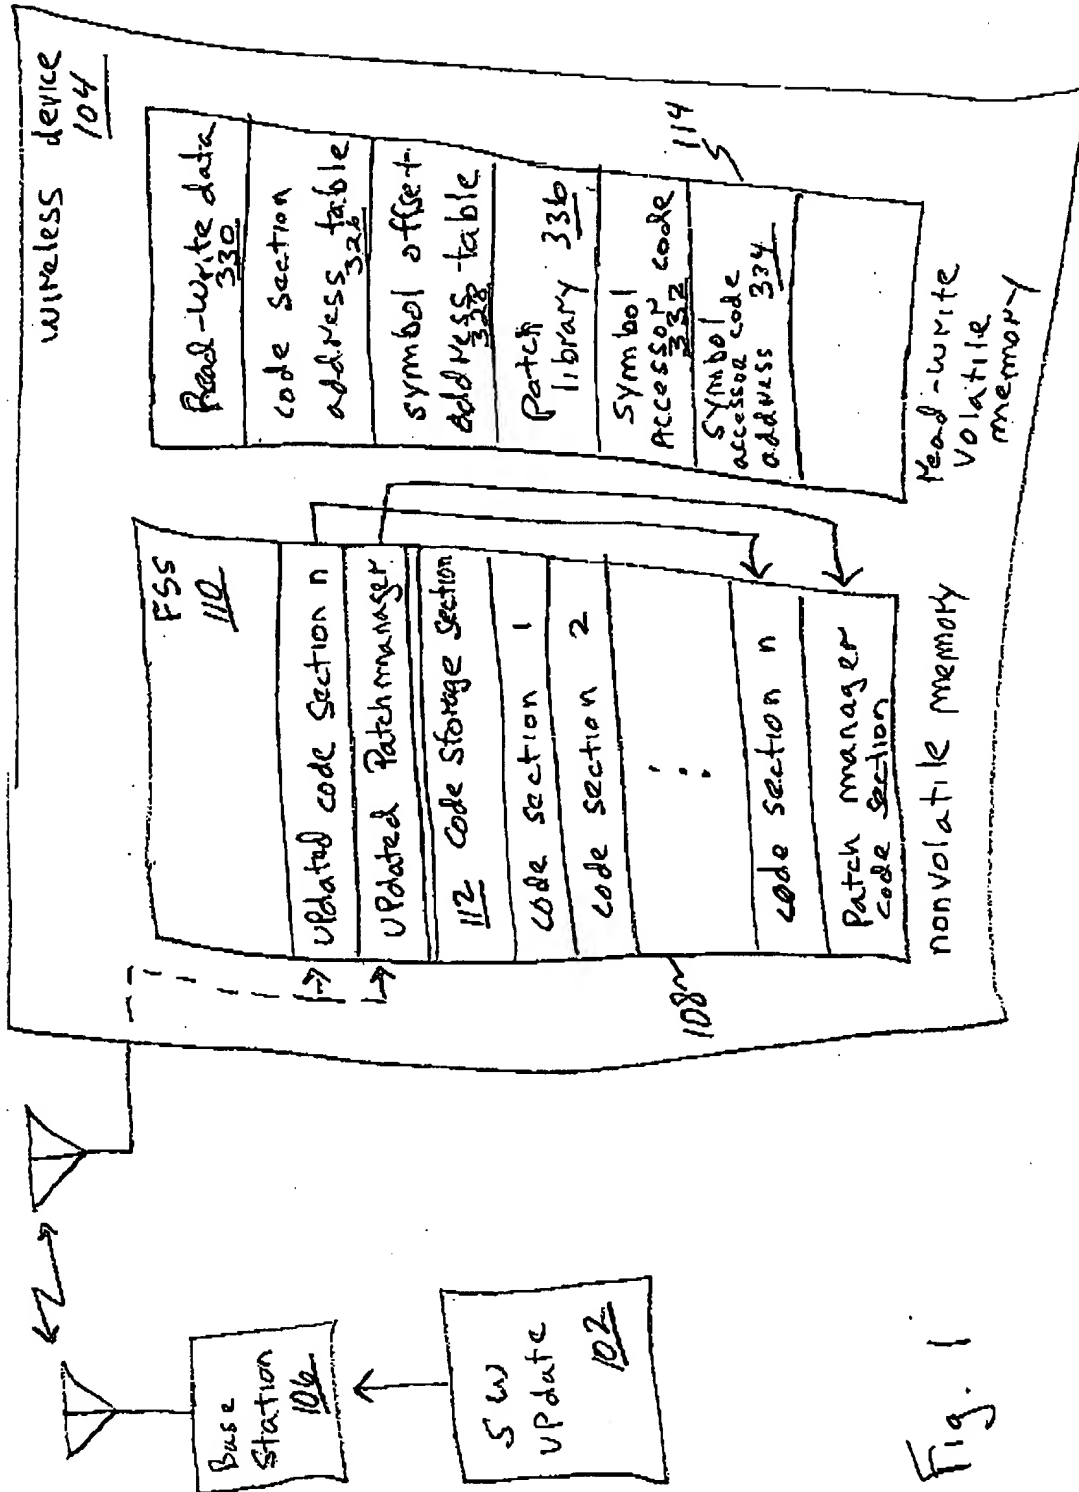 wireless device
104
FSS
110
updated code section n
updated Patch manager
112 code storage section
code section 1
code section 2
code section n
Patch manager
code section
108
nonvolatile memory
Read-write data
330
code section
address table
326
symbol offset
address table
328
Patch
library 336
Symbol
Accessor code
332
Symbol
accessor code
address 334
114
read-write
volatile
memory
Base
Station
106
SW
update
102
Fig. 1